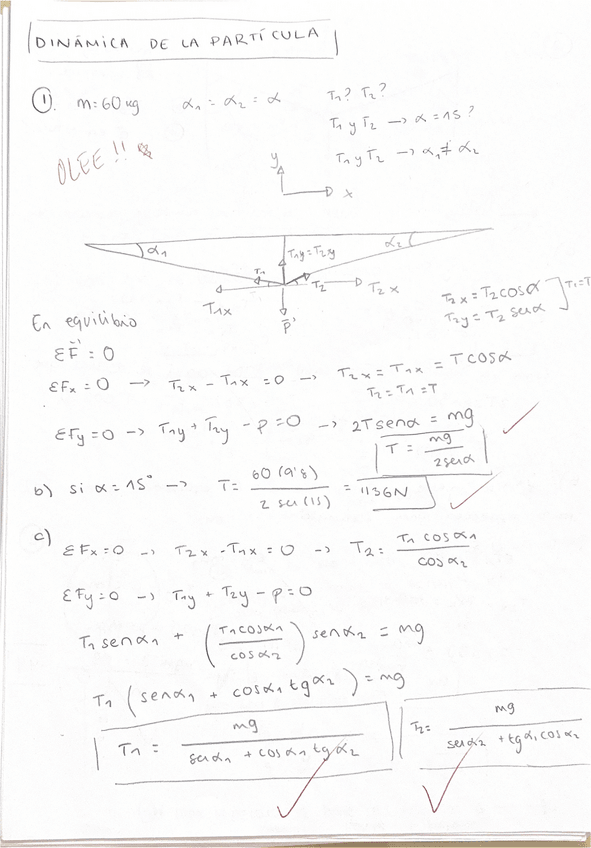 DINÁMICA DE LA PARTÍCULA
① m=60 kg α₁ = α₂ = α T₁? T₂?
T₁ y T₂ → α = 15?
T₁ y T₂ → α₁ ≠ α₂
OLEE!!
y
x
α₁ T₁y=T₂y α₂
T₁ T₂
T₁x T₂x
P
T₂x = T₂ cosα
T₂y = T₂ senα
T₁=T
En equilibrio
ΣF = 0
ΣFx = 0 → T₂x - T₁x = 0 → T₂x = T₁x = T cosα
T₂ = T₁ = T
ΣFy = 0 → T₁y + T₂y - P = 0 → 2T senα = mg
T = mg / 2senα
b) si α = 15° → T = 60 (9'8) / 2 sen (15) = 1136N
c)
ΣFx=0 → T₂x - T₁x = 0 → T₂ = T₁ cosα₁ / cosα₂
ΣFy=0 → T₁y + T₂y - P = 0
T₁ senα₁ + (T₁cosα₁ / cosα₂) senα₂ = mg
T₁ (senα₁ + cosα₁ tgα₂) = mg
T₁ = mg / senα₁ + cosα₁ tgα₂
T₂ = mg / senα₂ + tgα₁ cosα₂